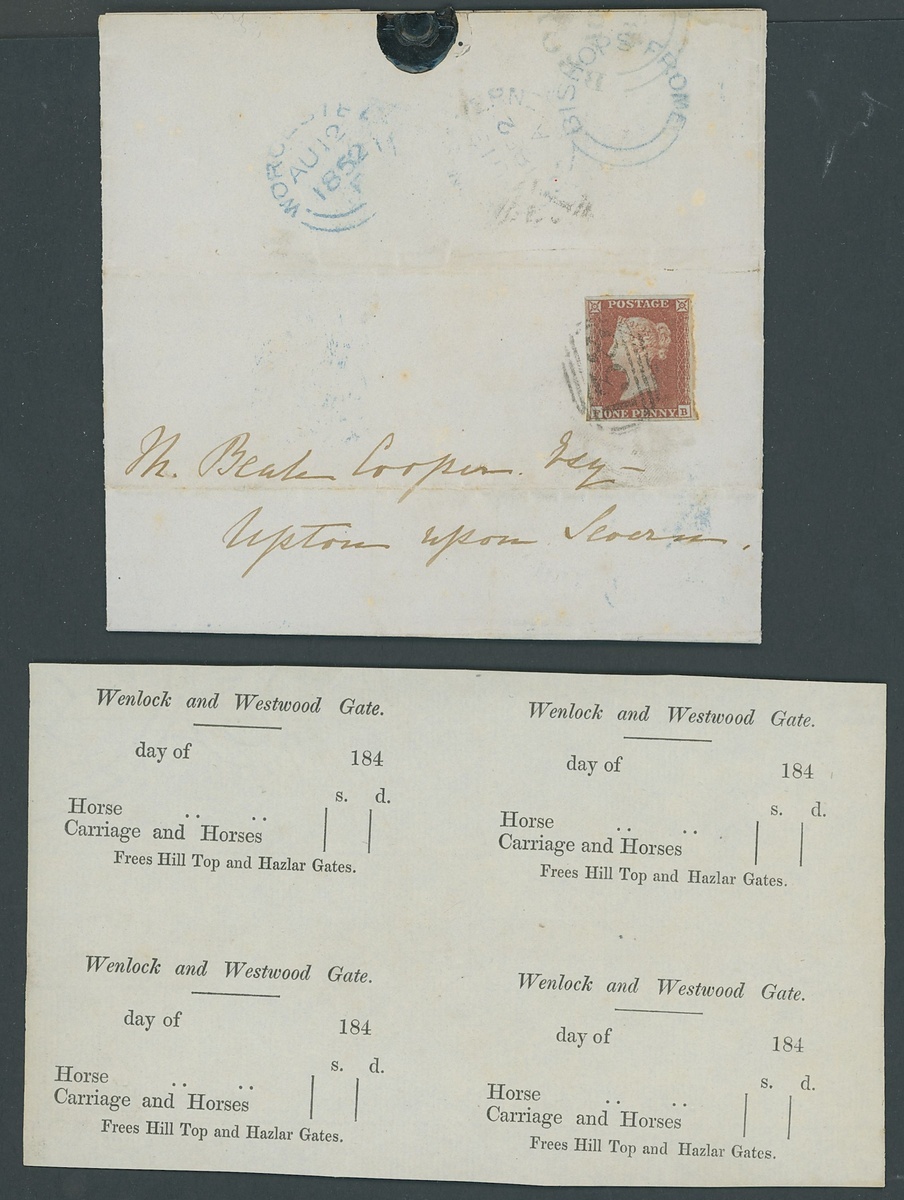 BISHOPS FROME
WORCESTER
AU 12
1852
POSTAGE
ONE PENNY
B
Cooper Esq
Upton upon Severn.
Wenlock and Westwood Gate.
day of 184
s. d.
Horse .. ..
Carriage and Horses
Frees Hill Top and Hazlar Gates.
Wenlock and Westwood Gate.
day of 184
s. d.
Horse .. ..
Carriage and Horses
Frees Hill Top and Hazlar Gates.
Wenlock and Westwood Gate.
day of 184
s. d.
Horse .. ..
Carriage and Horses
Frees Hill Top and Hazlar Gates.
Wenlock and Westwood Gate.
day of 184
s. d.
Horse .. ..
Carriage and Horses
Frees Hill Top and Hazlar Gates.